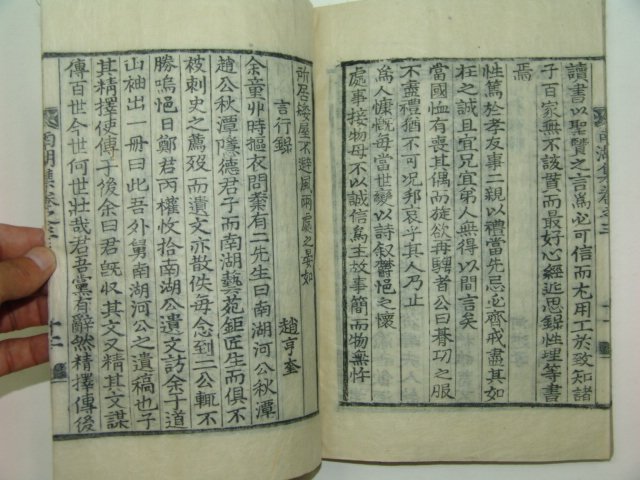 南湖集卷之三
讀書以聖賢之言爲必可信而尤用工於致知諸
子百家無不該貫而最好心經近思錄性理等書
焉
性篤於孝友事二親以禮當先忌必齊戒盡其如
在之誠且宜兄宜弟人無得以間言矣
當國恤有喪其偶而旋欲再騁者公曰朞功之服
不盡禮猶不可况邦哀乎其人乃止
爲人慷慨每當世變以詩叙鬱悒之懷
處事接物毋不以誠信爲主故事簡而物無忤
所居矮屋不避風雨處之晏如
言行錄 趙亨奎
余童丱時摳衣問業有二先生曰南湖河公秋潭
趙公秋潭隱德君子而南湖藝苑鉅匠生而俱不
被刺史之薦歿而遺文亦散佚每念到二公輒不
勝嗚悒日鄭君丙權收拾南湖公遺文訪余于道
山袖出一冊曰此吾外舅南湖河公之遺稿也子
其精擇使傳于後余曰君旣收其文又精其文謀
傳百世今世何世壯哉君吾黨有辭然精擇傳後
南湖集卷之三 十二